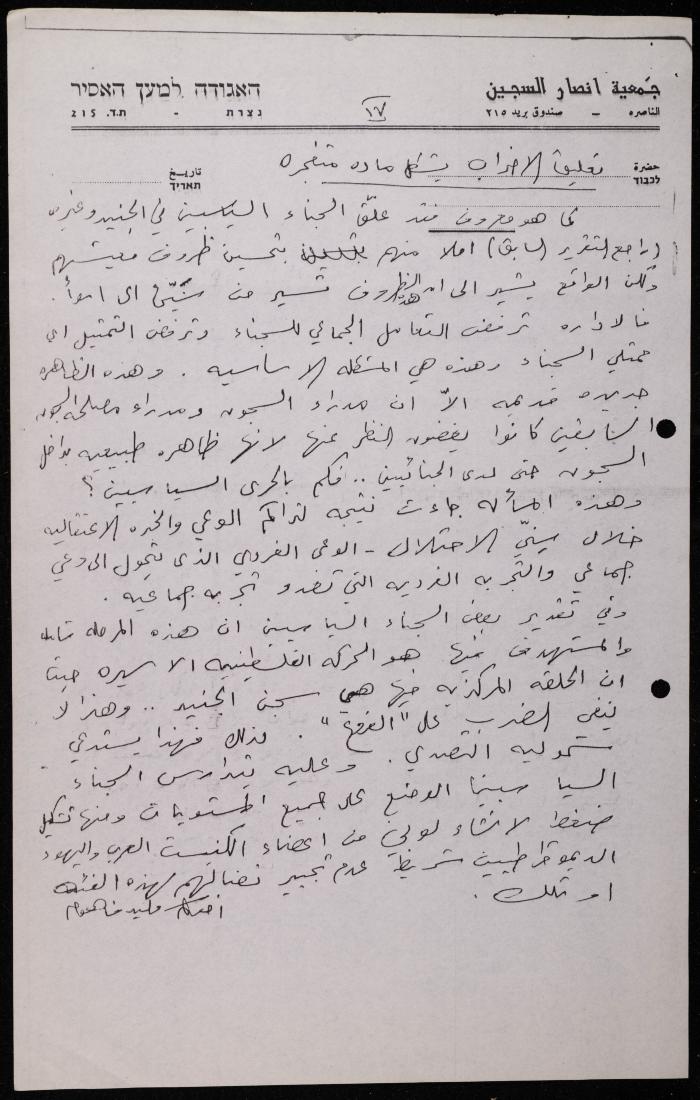 جمعية انصار السجين
האגודה למען האסיר
الناصره - صندوق بريد ٢١٥
נצרת - ת.ד. 215
١٧
حضرة
לכבוד
تاريخ
תאריך
تعليق الاضراب يشكل ماده متفجره
كما هو معروف فقد علّق السجناء السياسيين في الجنيد وغيره
(راجع التقرير السابق) املا منهم بتحسين ظروف معيشتهم
ولكن الواقع يشير الى ان هذه الظروف تسير من سيّئ الى اسوأ.
فالاداره ترفض التعامل الجماعي للسجناء وترفض التمثيل اي
ممثلي السجناء وهذه هي المشكله الاساسيه. وهذه الظاهره
جديده قديمه الاّ ان مدراء السجون ومدراء مصلحة السجون
السابقين كانوا يغضون النظر عنها لانها ظاهره طبيعيه داخل
السجون حتى لدى الجنائيين.. فكم بالحرى السياسيين؟
وهذه المسأله جاءت نتيجه لتراكم الوعي والخبره الاعتقاليه
خلال سنيّ الاحتلال - الوعي الفردي الذي تحول الى وعي
جماعي والتجربه الفرديه التي تغدو تجربه جماعيه.
وفي تقدير بعض السجناء السياسيين ان هذه المرحله
والمستهدف منها هو الحركه الفلسطينيه الاسيره حيث
ان الحلقه المركزيه فيها هي سجن الجنيد.. وهذا لا
ينفي الضرب على "الفروع". لذلك فهذا يستدعي
شموليه التصدي. وعليه يتدارس السجناء
السياسيين الوضع على جميع المستويات ومنها تشكيل
ضغط لانشاء لوبي من اعضاء الكنيست العرب واليهود
الديموقراطيين شريطة عدم تجيير نضالهم لهذه الفئه
او تلك.
وليد فاهوم